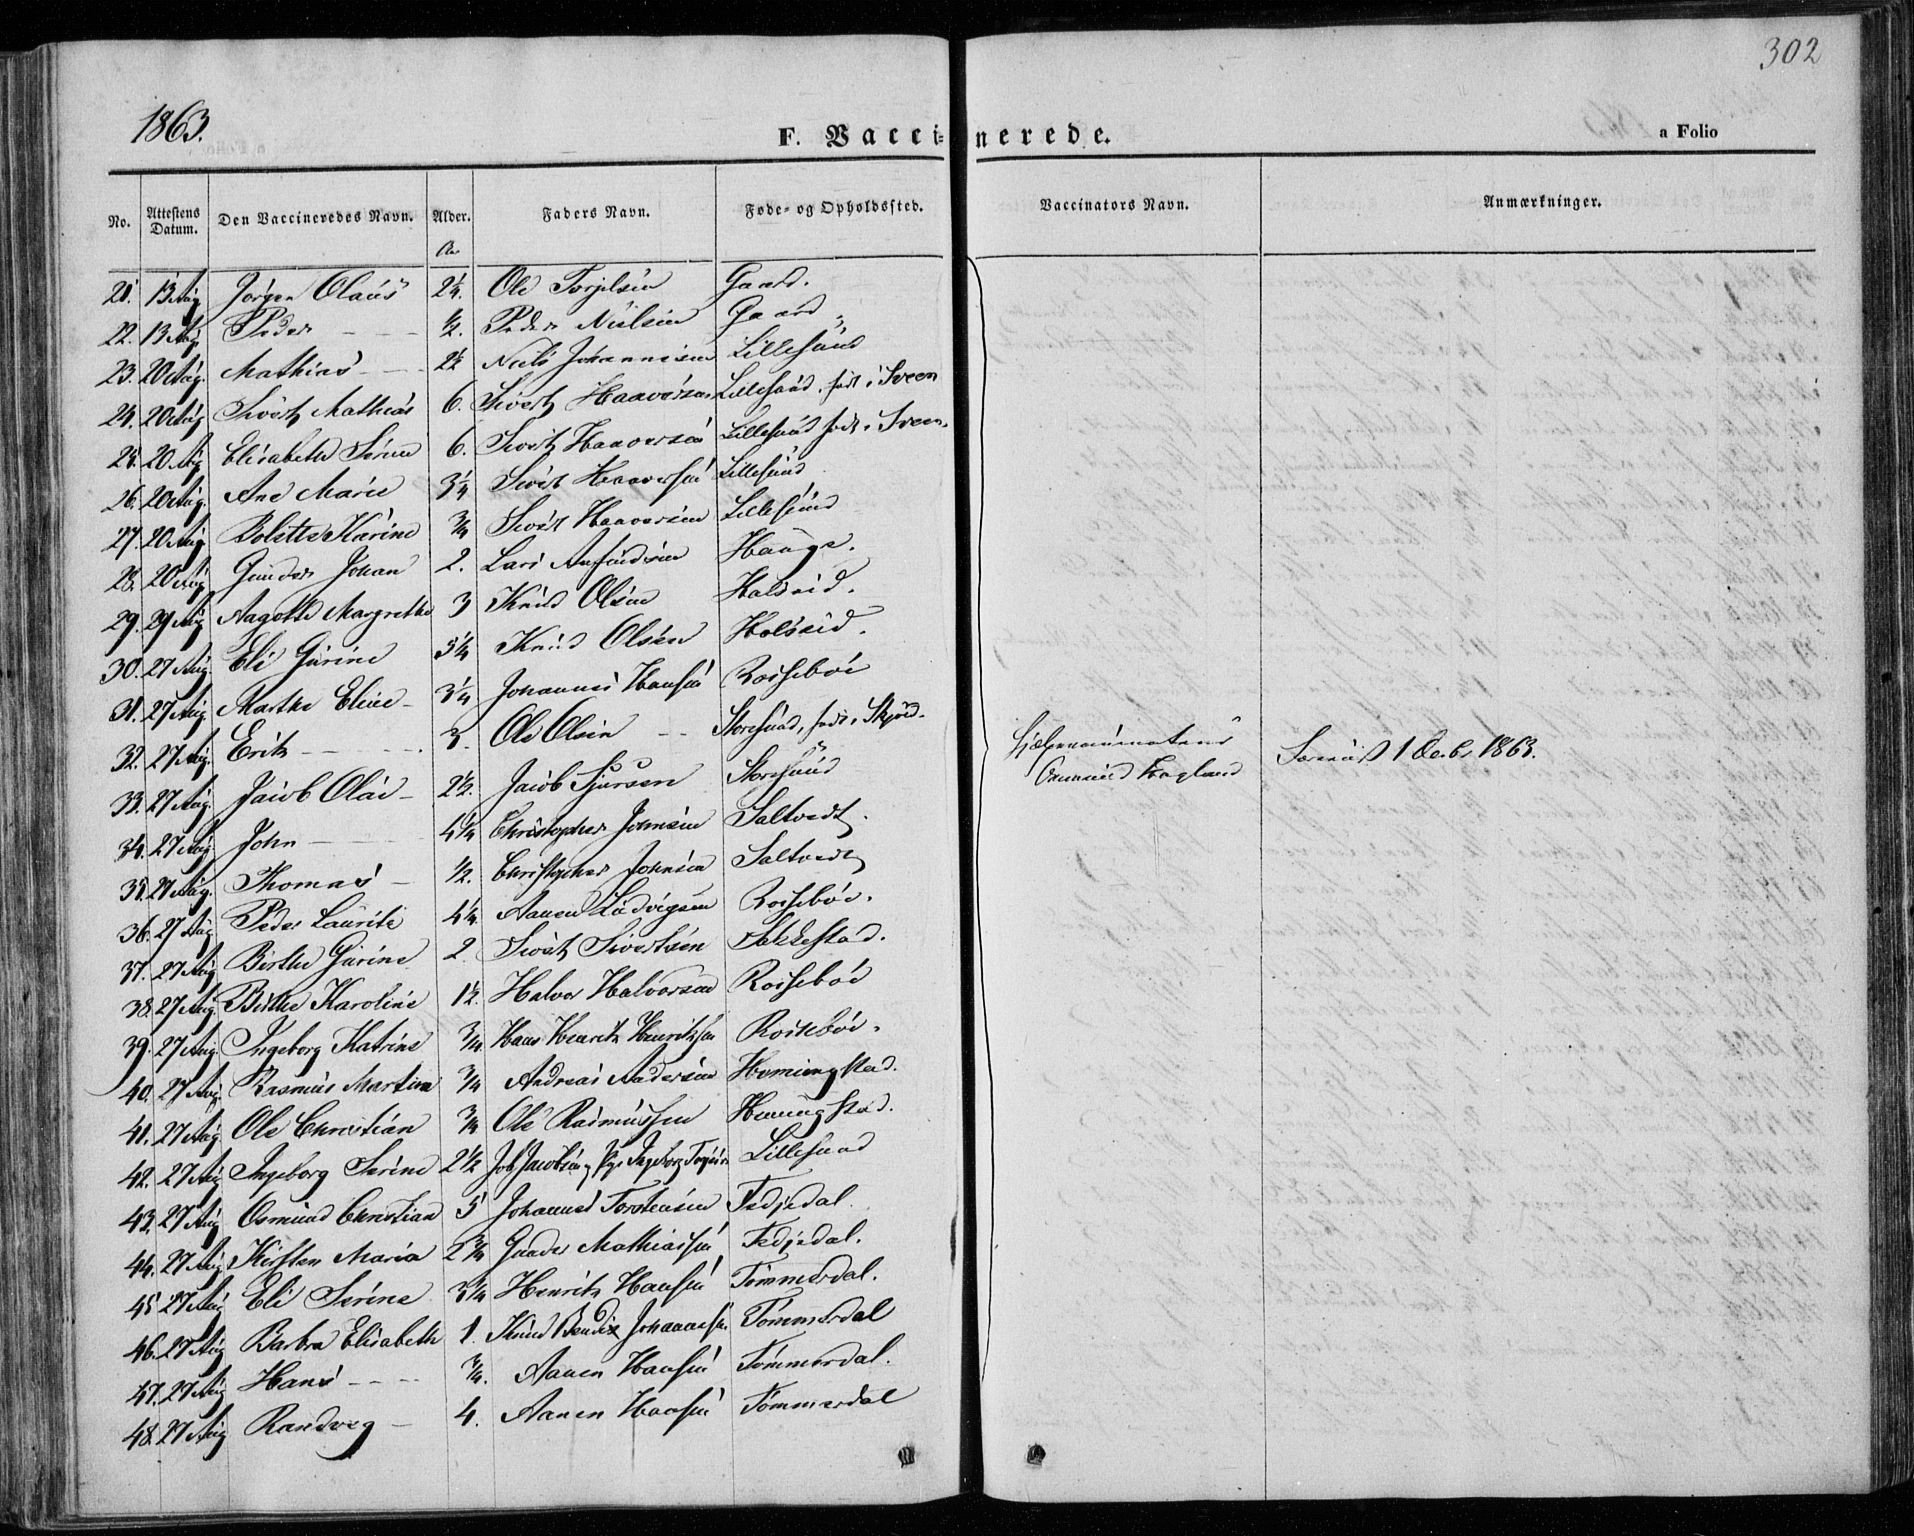 302
1863.
F. Vaccinerede.
a Folio
No. Attestens Datum. Den Vaccineredes Navn. Alder. Faders Navn. Føde- og Opholdssted. Vaccinators Navn. Anmærkninger.
21. 13 Aug Jørgen Olaus 2¼. Ole Torjilsen Gaard.
22. 13 Aug Peder ½. Peder Nielsen Gaard
23. 20 Aug. Mathias 2½ Niels Johannesen Lillesund
24. 20 Aug Sivert Mathias 6. Sivert Haaversen Lillesund, født i Sveen
25. 20 Aug Elisabeth Serine 6. Sivert Haaversen Lillesund født i Sveen.
26. 20 Aug. Ane Marie 3¼ Sivert Haaversen Lillesund
27. 20 Aug Bolette Karine ¾ Sivert Haaversen Lillesund
28. 20 Aug Gunder Johan 2. Lars Anfindsen Hauge.
29. 27 Aug Aagotte Margrethe 3 Knud Olsen Holseid.
30. 27 Aug. Eli Gurine 5¼ Knud Olsen Holseid.
31. 27 Aug. Marthe Eline 3¼ Johannes Hansen Rossebøe
32. 27 Aug. Erik 3. Ole Olsen Storesund, født i Skjold.
33. 27 Aug. Jacob Olai 2½. Jacob Sjursen Storesund
34. 27 Aug John 4¼ Christopher Johnsen Saltvedt.
35. 27 Aug. Thomas ½. Christopher Johnsen Saltvedt
36. 27 Aug Peder Laurits 4¼ Aanen Ludvigsen Rossebøe.
37. 27 Aug Birthe Gurine 2. Sivert Sivertsen Sakkestad.
38. 27 Aug Birthe Karoline 1½. Halvor Halvorsen Rossebøe
39. 27 Aug Ingeborg Katrine ¾ Hans Henrik Henriksen Rossebøe.
40. 27 Aug Rasmus Martin ¾ Andreas Andersen Hemingstad.
41. 27 Aug Ole Christian ¾ Ole Rasmussen Hemingstad.
42. 27 Aug Ingeborg Serine 2½ Joh Jacobsen Pge Ingeborg Lillesund
43. 27 Aug Osmund Christian 5 Johannes Torstensen Fedjedal
44. 27 Aug. Kirsten Maria 2¾ Gunder Mathiassen Fedjedal.
45 27 Aug Eli Serine 3¼ Henrik Hansen Tømmerdal.
46. 27 Aug Barbra Elisabeth 1. Knud Bendix Johannesen Tømmerdal
47. 27 Aug Hans ¾. Aanen Hansen Tømmerdal.
48. 27 Aug Randveg 4. Aanen Hansen Tømmerdal
Hjælpevaccinateur
Osmund Hagland
1 Decbr 1863.